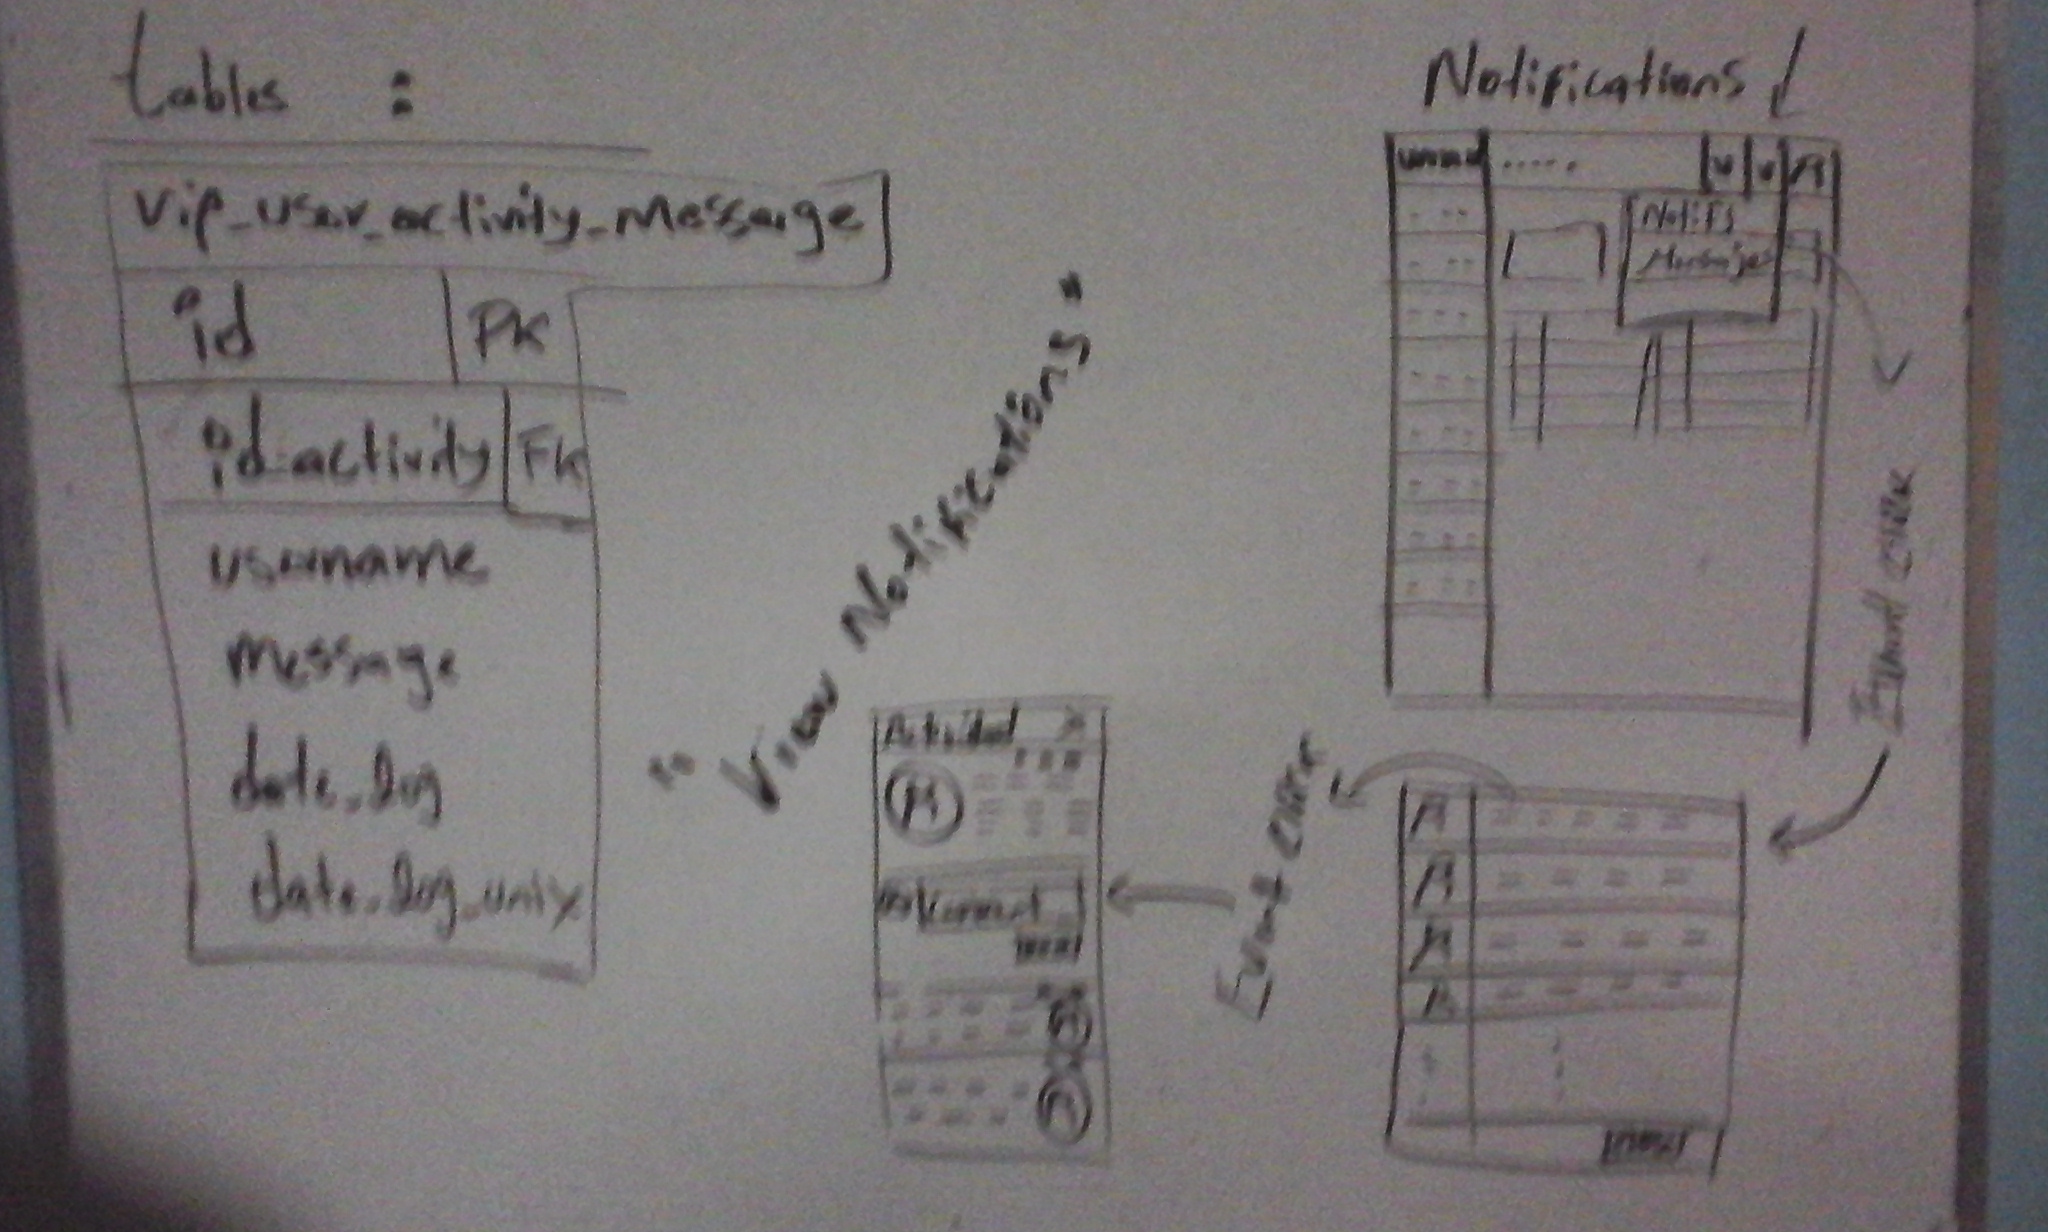 tables :
vip_user_activity_message
id PK
id_activity FK
username
message
date_log
date_log_unix
"View Notifications"
Notifications
Notifs
Messages
Event click
Event click
Actividad X
Comment